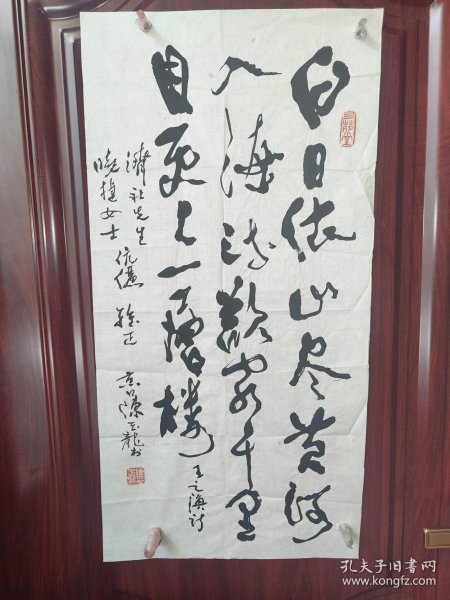 白日依山尽黄河
入海流欲穷千里
目更上一层楼
王之涣诗
济社先生
晓捷女士 伉俪 雅正
京 陈玉龙书
孔夫子旧书网
www.kongfz.com